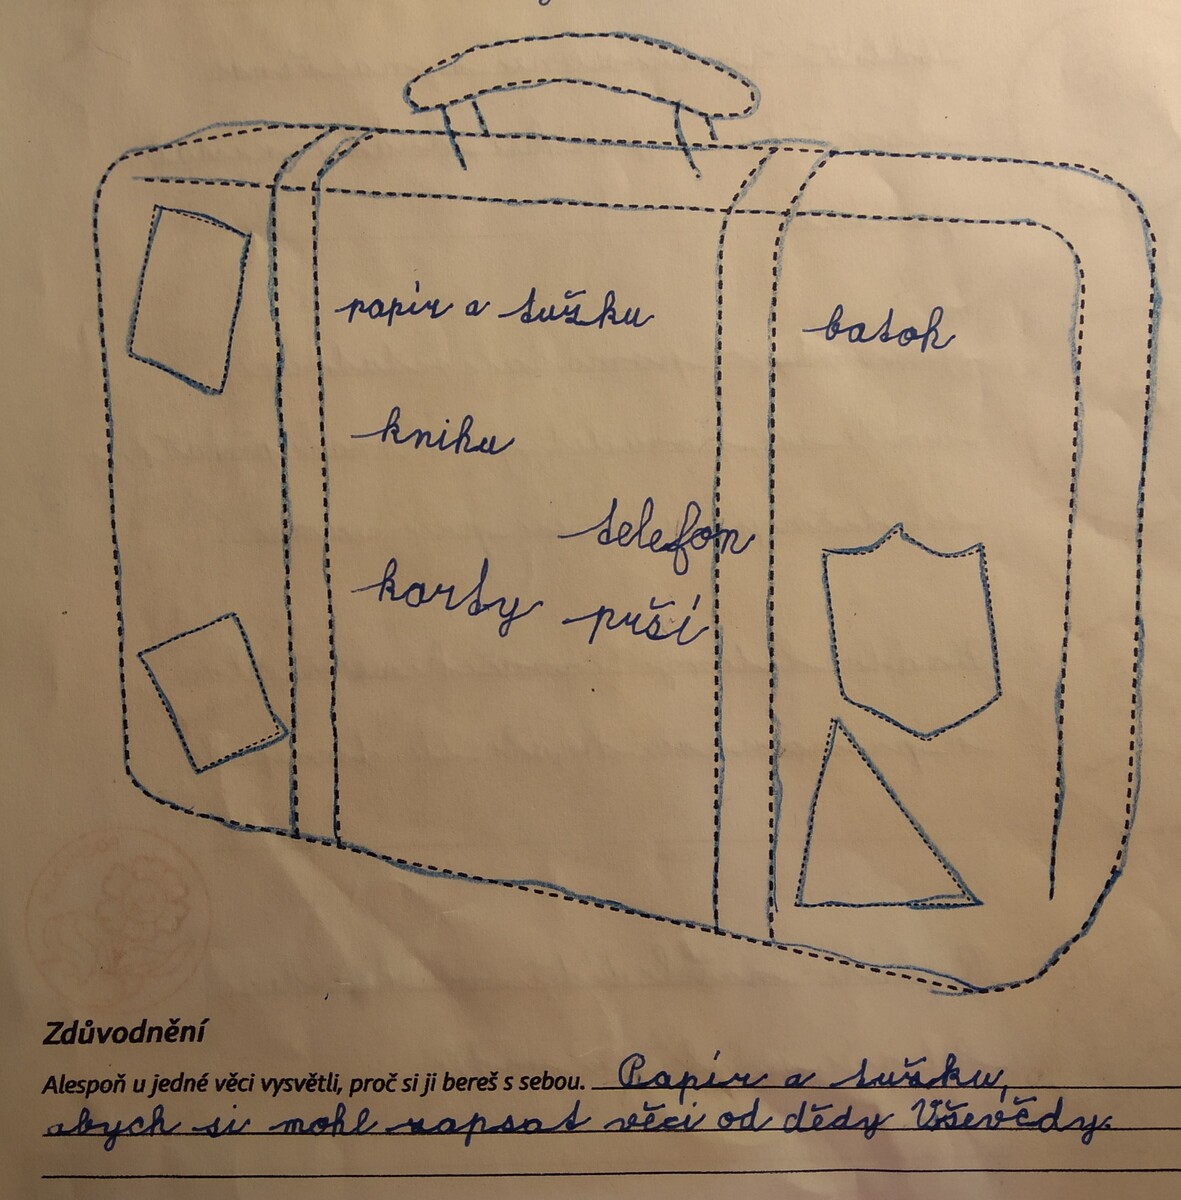 papír a tužku
batoh
knihu
telefon
karty prší
Zdůvodnění
Alespoň u jedné věci vysvětli, proč si ji bereš s sebou. Papír a tužku,
abych si mohl zapsat věci od dědy Vševědy.